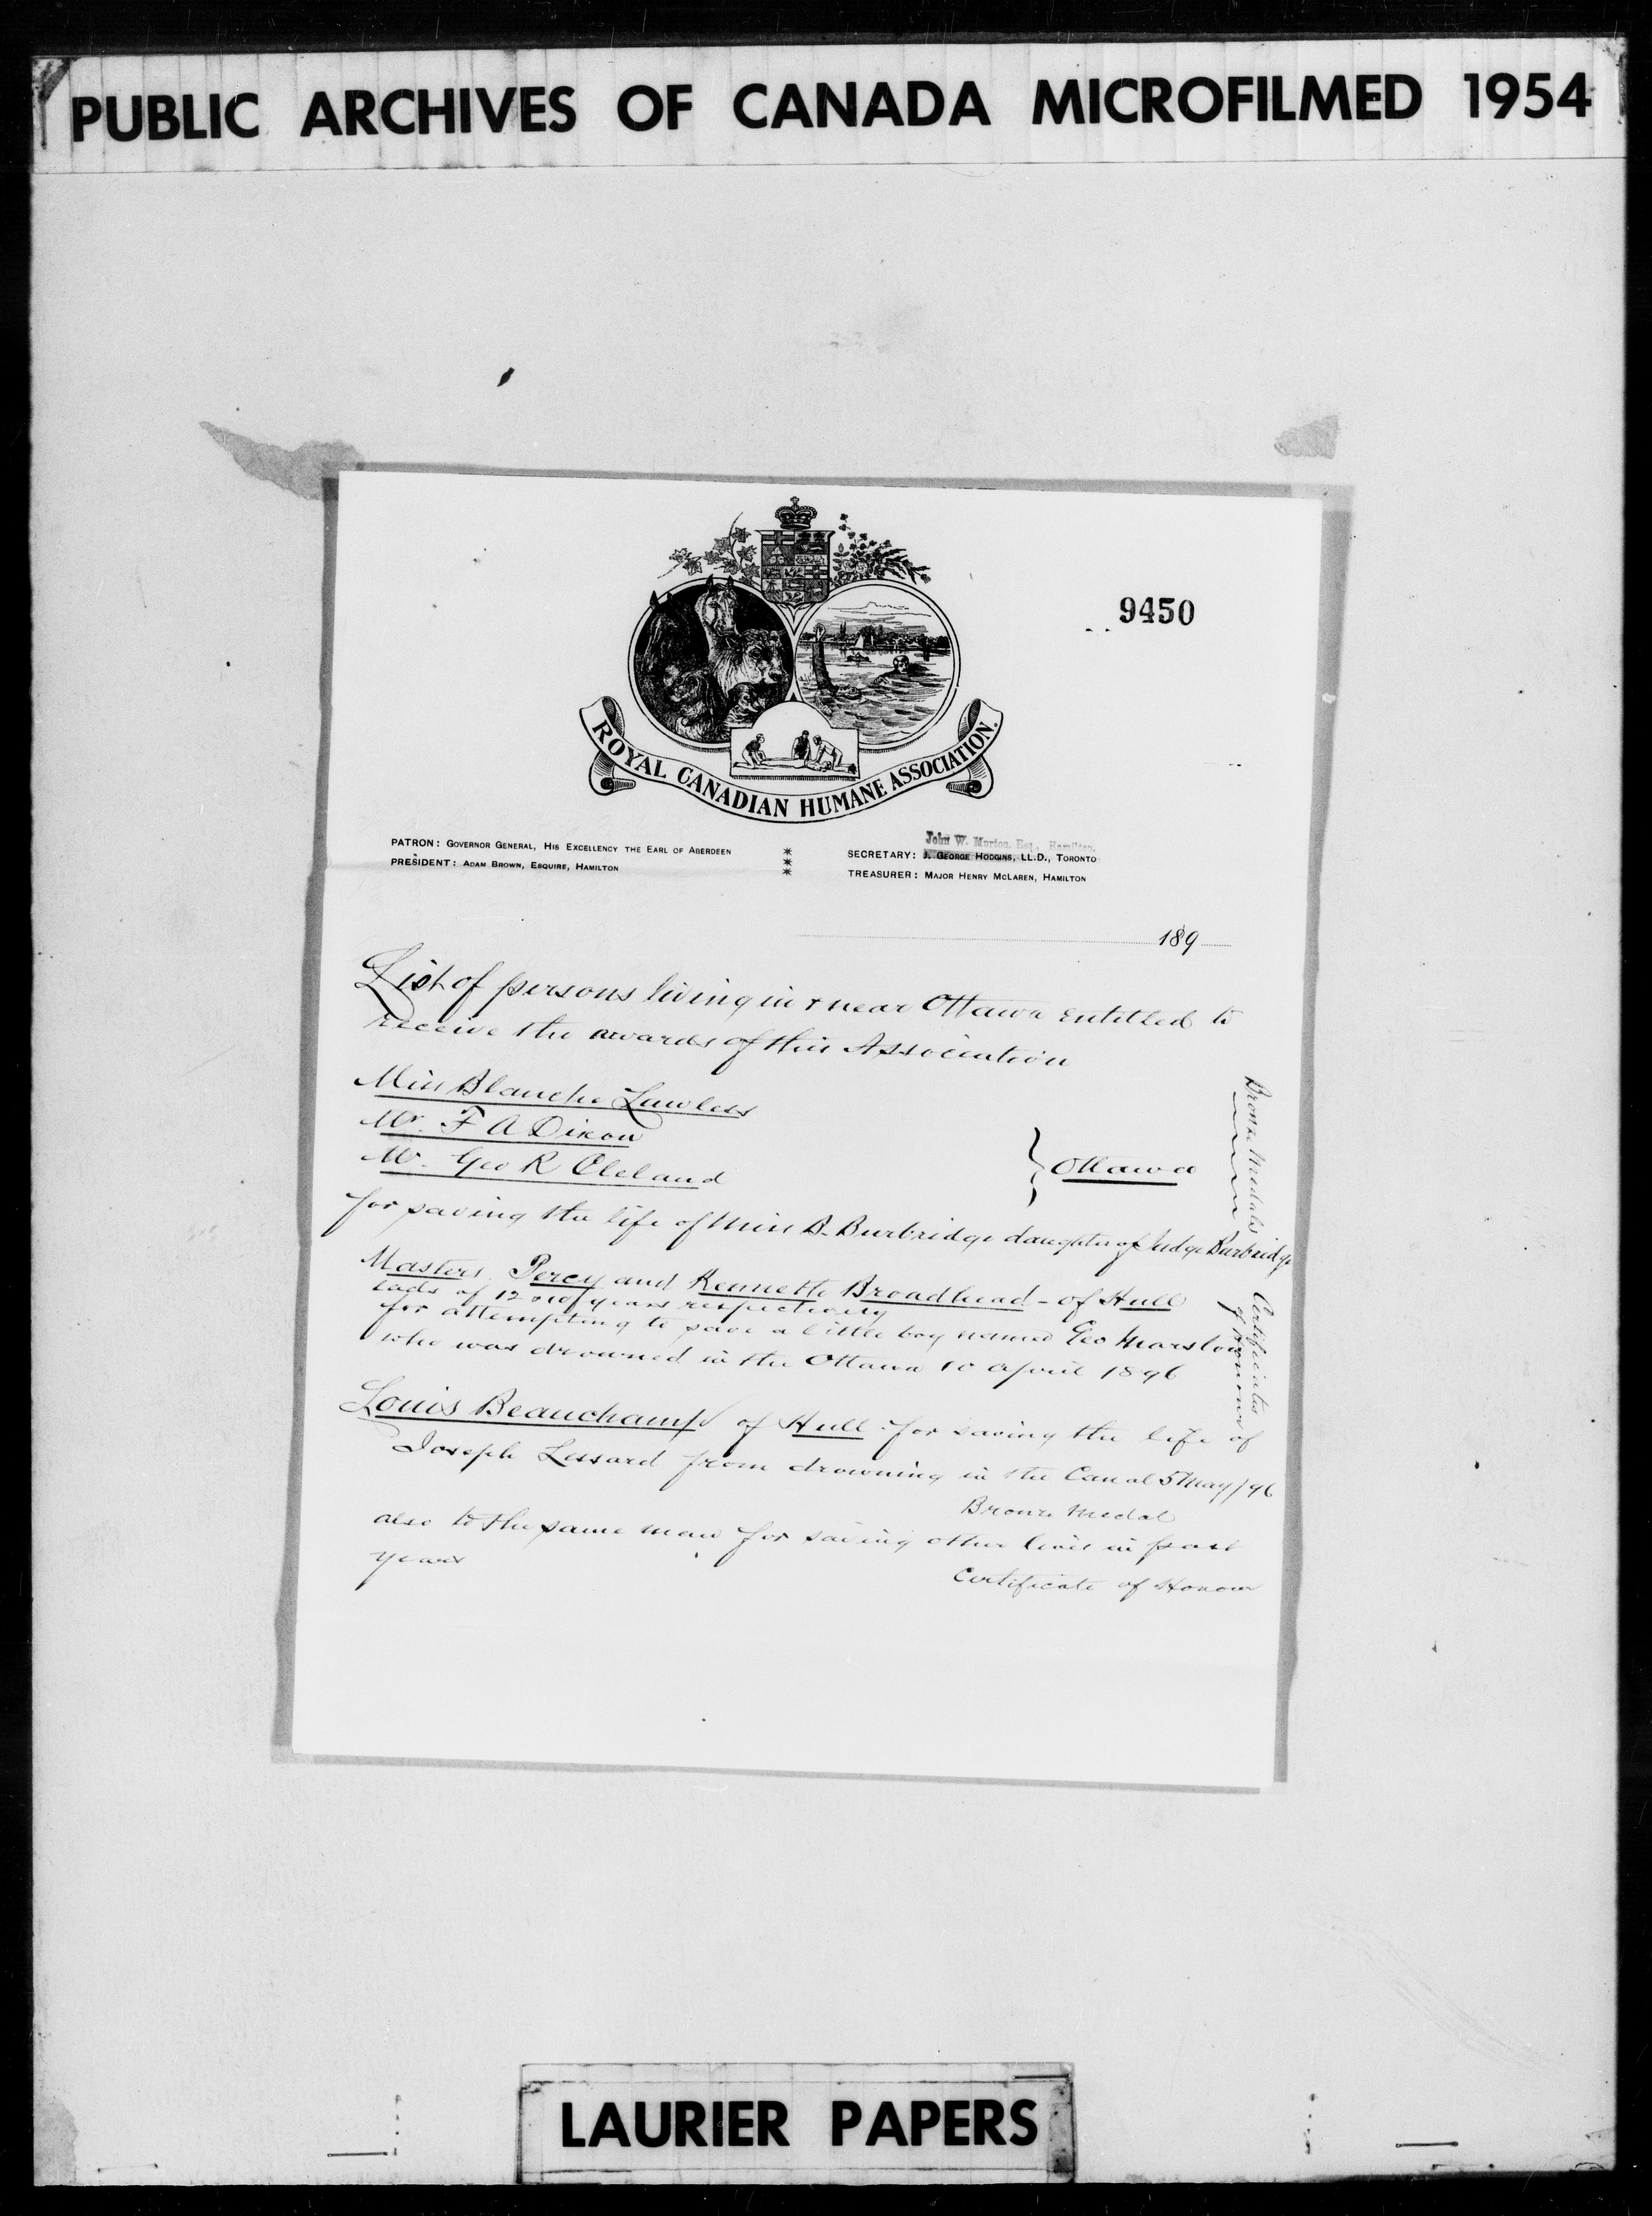 PUBLIC ARCHIVES OF CANADA MICROFILMED 1954
9450
ROYAL CANADIAN HUMANE ASSOCIATION.
PATRON: GOVERNOR GENERAL, HIS EXCELLENCY THE EARL OF ABERDEEN
PRESIDENT: ADAM BROWN, ESQUIRE, HAMILTON
John W. Morton, Esq., Hamilton.
SECRETARY: J. GEORGE HODGINS, LL.D., TORONTO
TREASURER: MAJOR HENRY MCLAREN, HAMILTON
189
List of persons living in & near Ottawa entitled to
receive the awards of this Association
Miss Blanche Lawless
Mr. F A Dixon
Mr. Geo R Cleland
Ottawa
Bronze Medals
for saving the life of Miss B. Burbridge daughter of Judge Burbridge
Masters Percy and Kenneth Broadhead - of Hull
lads of 12 & 10 years respectively
for attempting to save a little boy named Geo Marslow
who was drowned in the Ottawa 10 April 1896
Certificates
of Honour
Louis Beauchamp of Hull - for saving the life of
Joseph Lessard from drowning in the Canal 5 May/96
Bronze Medal
also to the same man for saving other lives in past
years
Certificate of Honour
LAURIER PAPERS